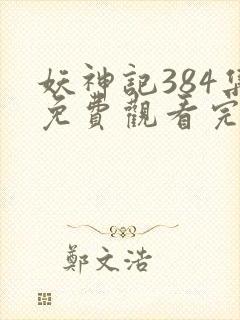 妖神記384集
免費觀看完
鄭文浩